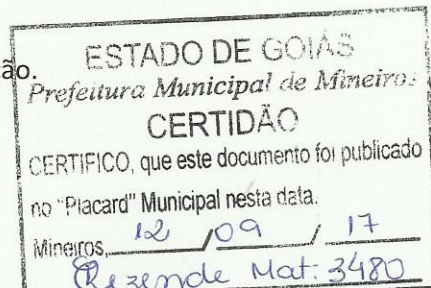 ão.
ESTADO DE GOIÁS
Prefeitura Municipal de Mineiros
CERTIDÃO
CERTIFICO, que este documento foi publicado
no "Placard" Municipal nesta data.
Mineiros, 12 / 09 / 17
Rezende Mat: 3480